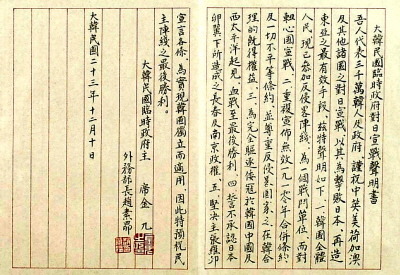 大韓民國臨時政府對日宣戰聲明書
吾人代表三千萬韓人及政府 謹祝中英美荷加澳
及其他諸國之對日宣戰,以其為擊敗日本,再造
東亞之最有效手段,玆特聲明如下,一、韓國全體
人民,現已參加反侵略陣線,為一個戰鬥單位,而對
軸心國宣戰,二、重複宣佈無效一九一〇年合併條約,
及一切不平等條約,並尊重反侵略國家之在韓合
理的既得權益,三、為完全驅逐倭寇於韓國中國及
西太平洋起見,血戰至最後勝利,四、誓不承認日本
卵翼下所造成之長春及南京政權,五、堅決主張羅邱
宣言各條,為實現韓國獨立而適用,因此特預祝民
主陣綫之最後勝利。
大韓民國臨時政府主 席金 九
外務部長趙素昂
大韓民國二十三年十二月十日